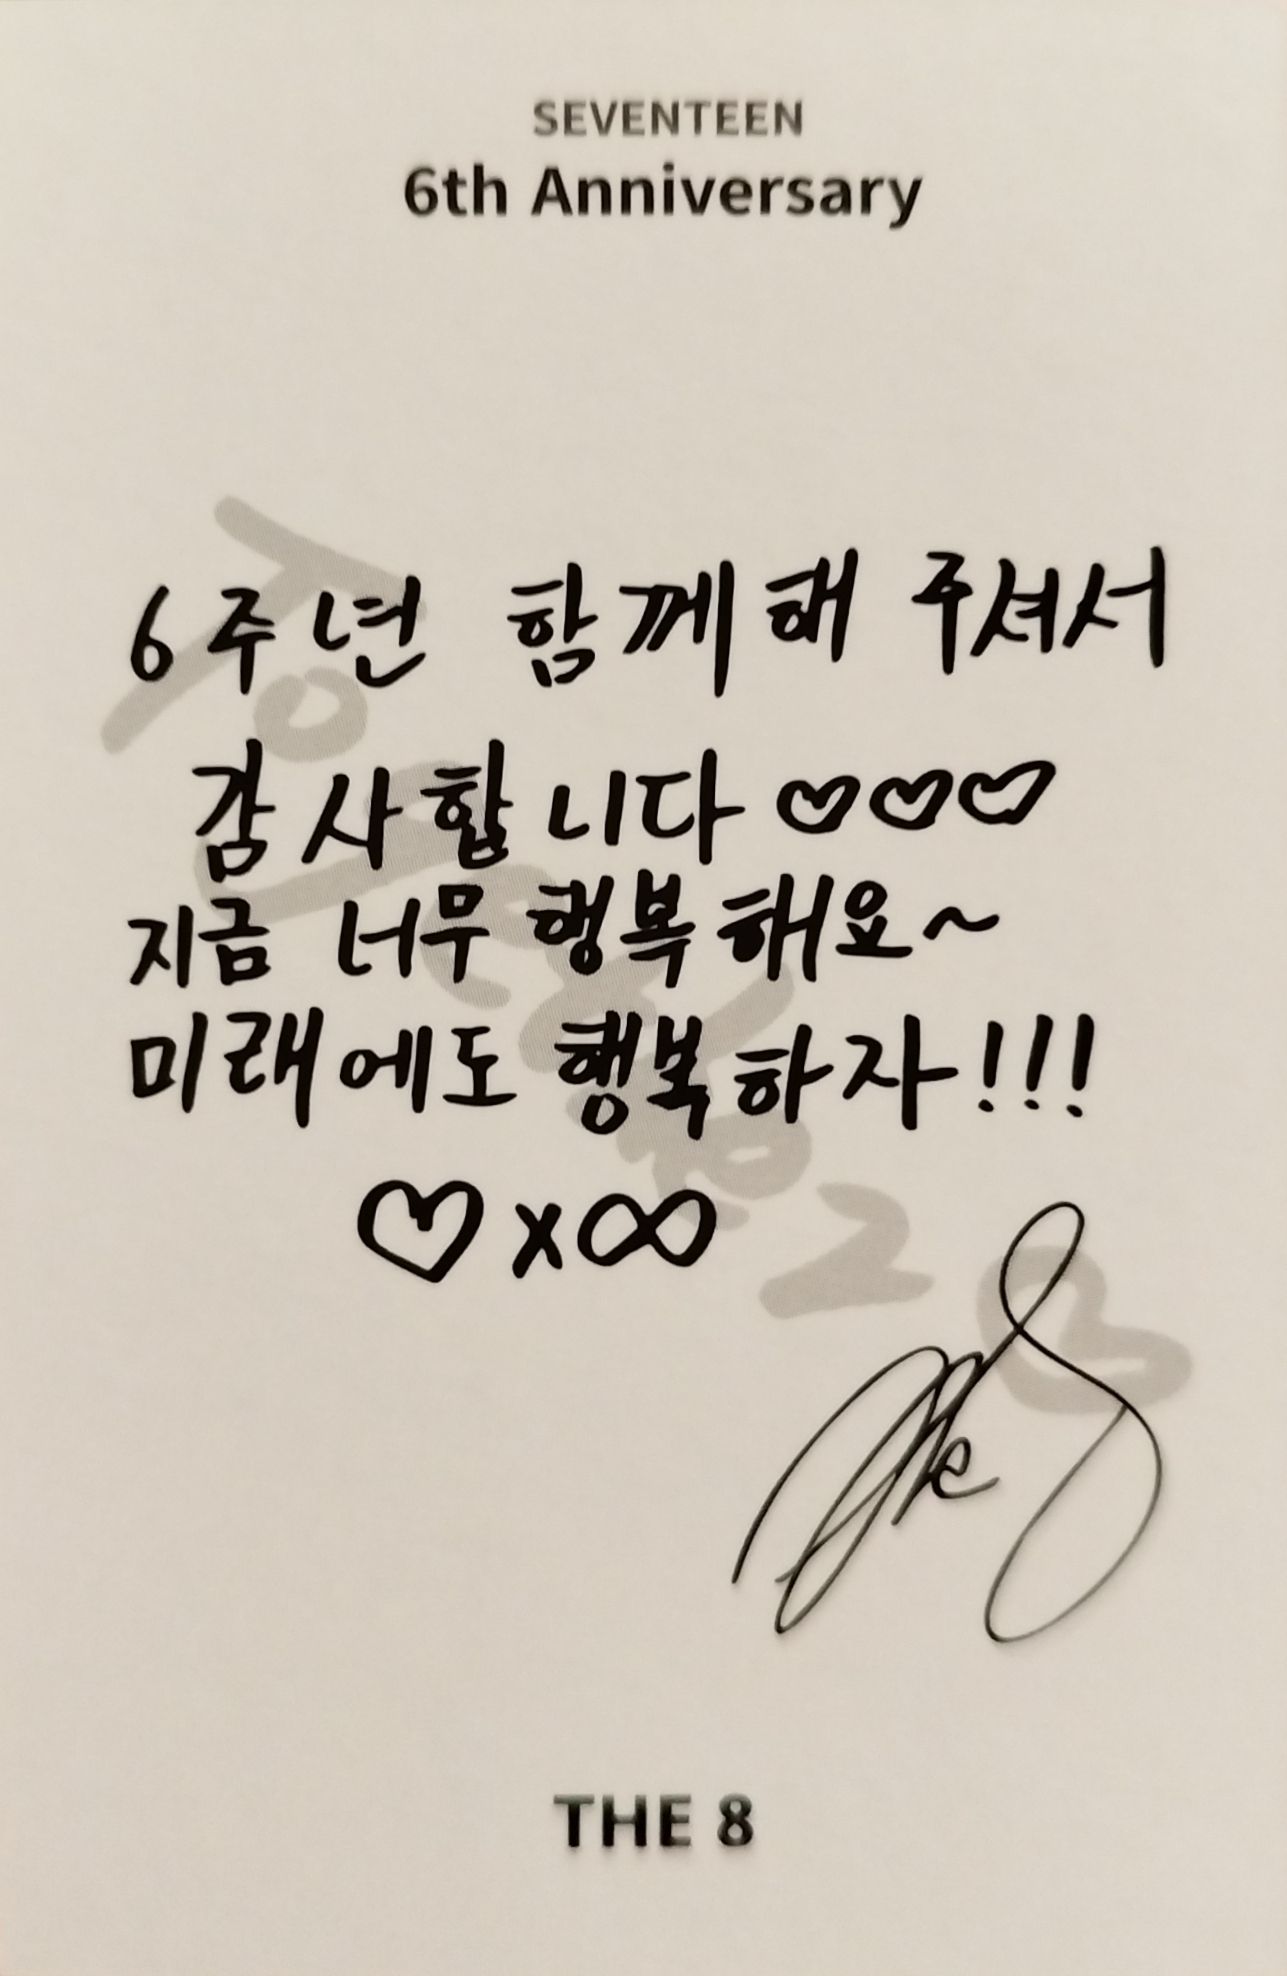 SEVENTEEN
6th Anniversary
6주년 함께해 주셔서
감사합니다 ♡♡♡
지금 너무 행복해요~
미래에도 행복하자!!!
♡x∞
The 8
THE 8